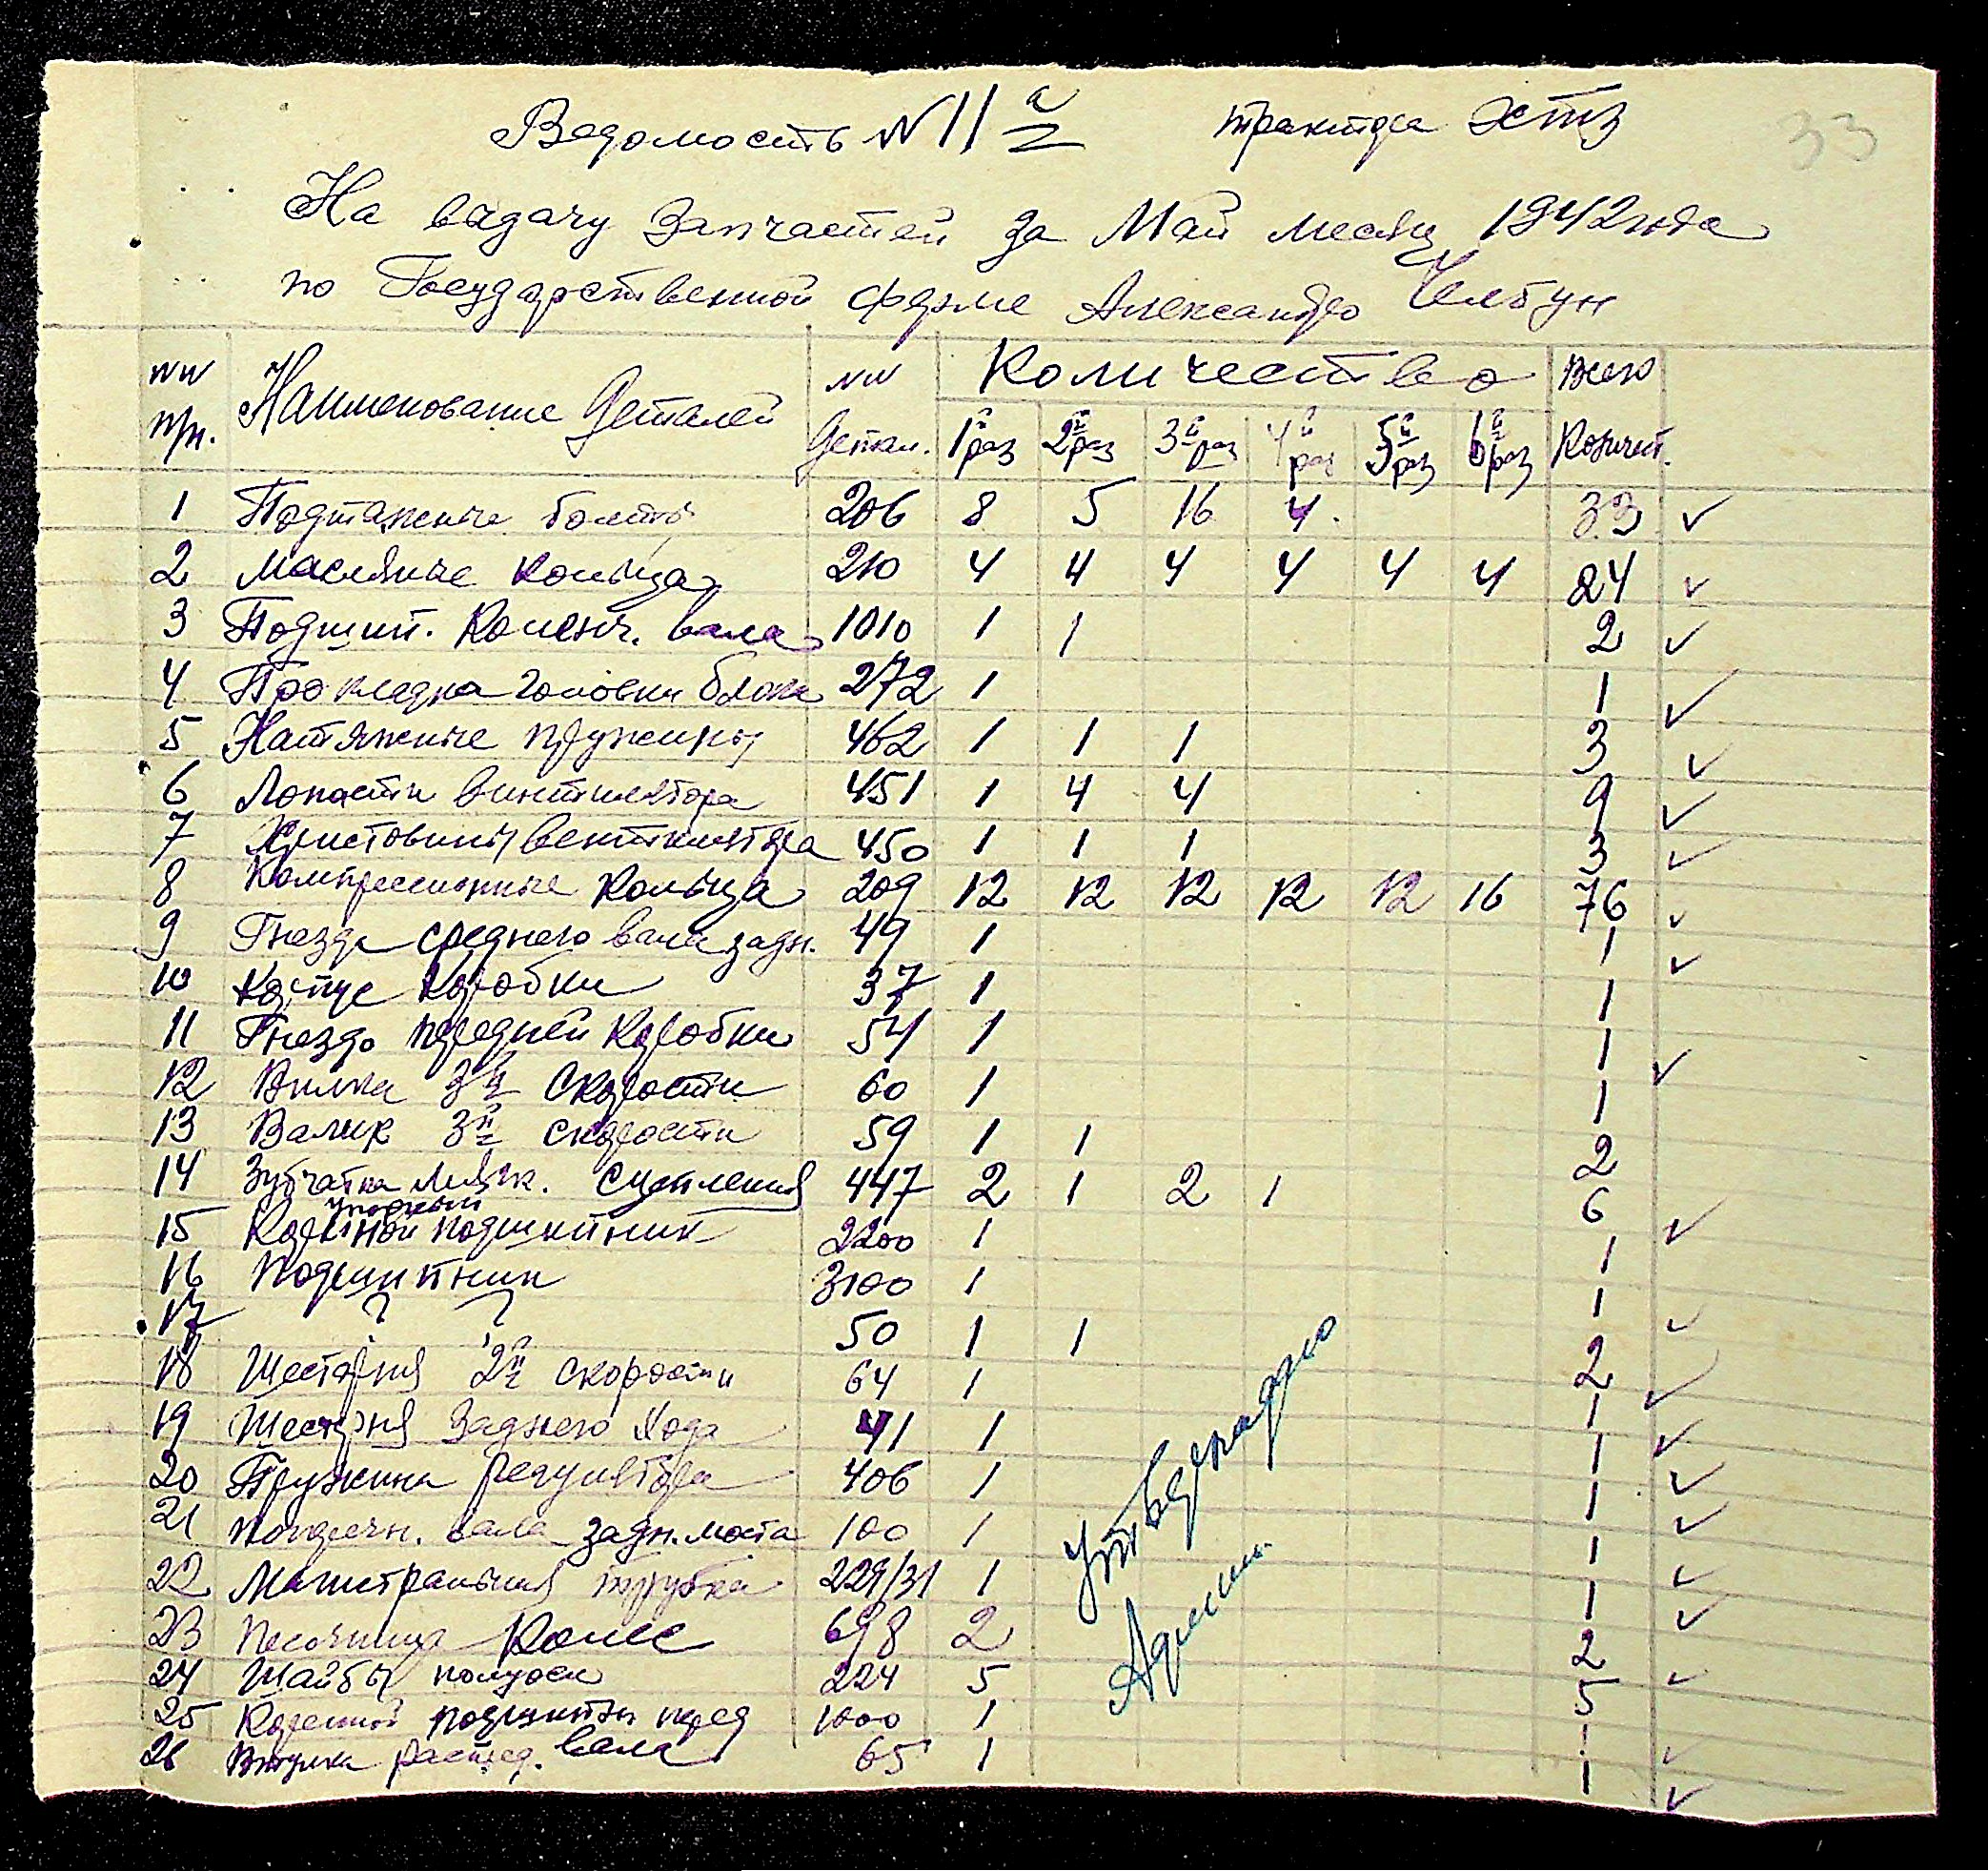 Ведомость № 11 а трактора ХТЗ
33
На выдачу Запчастей за Май месяц 1942 года
по Государственной ферме Александро
№№ п/п. Наименование Деталей №№ Детал. Количество Всего Количест.
1й раз 2й раз 3й раз 4й раз 5й раз 6й раз
1 Подтяжные болты 206 8 5 16 4. 33 ✓
2 Масляные кольца 210 4 4 4 4 4 4 24 ✓
3 Подшип. Коленч. вала 1010 1 1 2 ✓
4 Прокладка головки блока 272 1 1 ✓
5 Натяжные пружины 462 1 1 1 3 ✓
6 Лопасти винтилятора 451 1 4 4 9 ✓
7 Кристовины вентилятора 450 1 1 1 3 ✓
8 Компрессионные Кольца 209 12 12 12 12 12 16 76 ✓
9 Гнездо среднего вала задн. 49 1 1 ✓
10 Картус Коробки 37 1 1
11 Гнездо передней Коробки 54 1 1 ✓
12 Вилка 3й Скорости 60 1 1
13 Валик 3й скорости 59 1 1 2
14 Зубчатка сцепления 447 2 1 2 1 6 ✓
упорный
15 Коренной подшипник 2200 1 1
16 Подшипник 3100 1 1 ✓
17 50 1 1 2 ✓
18 Шестерня 2й скорости 64 1 1 ✓
19 Шестерня Заднего Хода 41 1 1 ✓
20 Пружина регулятора 406 1 1 ✓
21 вала задн. моста 100 1 1 ✓
22 Магистральная трубка 229/31 1 1 ✓
23 Песочница Колес 698 2 2 ✓
24 Шайбы полуоси 224 5 5
25 Коренной подшипн перед 1000 1 1 ✓
26 Втулка распред. вала 65 1 1 ✓
Утверждаю